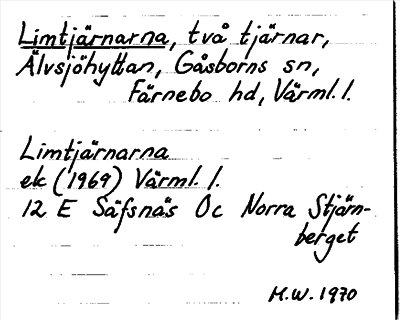 Limtjärnarna, två tjärnar,
Älvsjöhyttan, Gåsborns sn,
Färnebo hd, Värml. l.
Limtjärnarna
ek (1969) Värml. l.
12 E Säfsnäs Oc Norra Stjärn-
berget
M.W. 1970